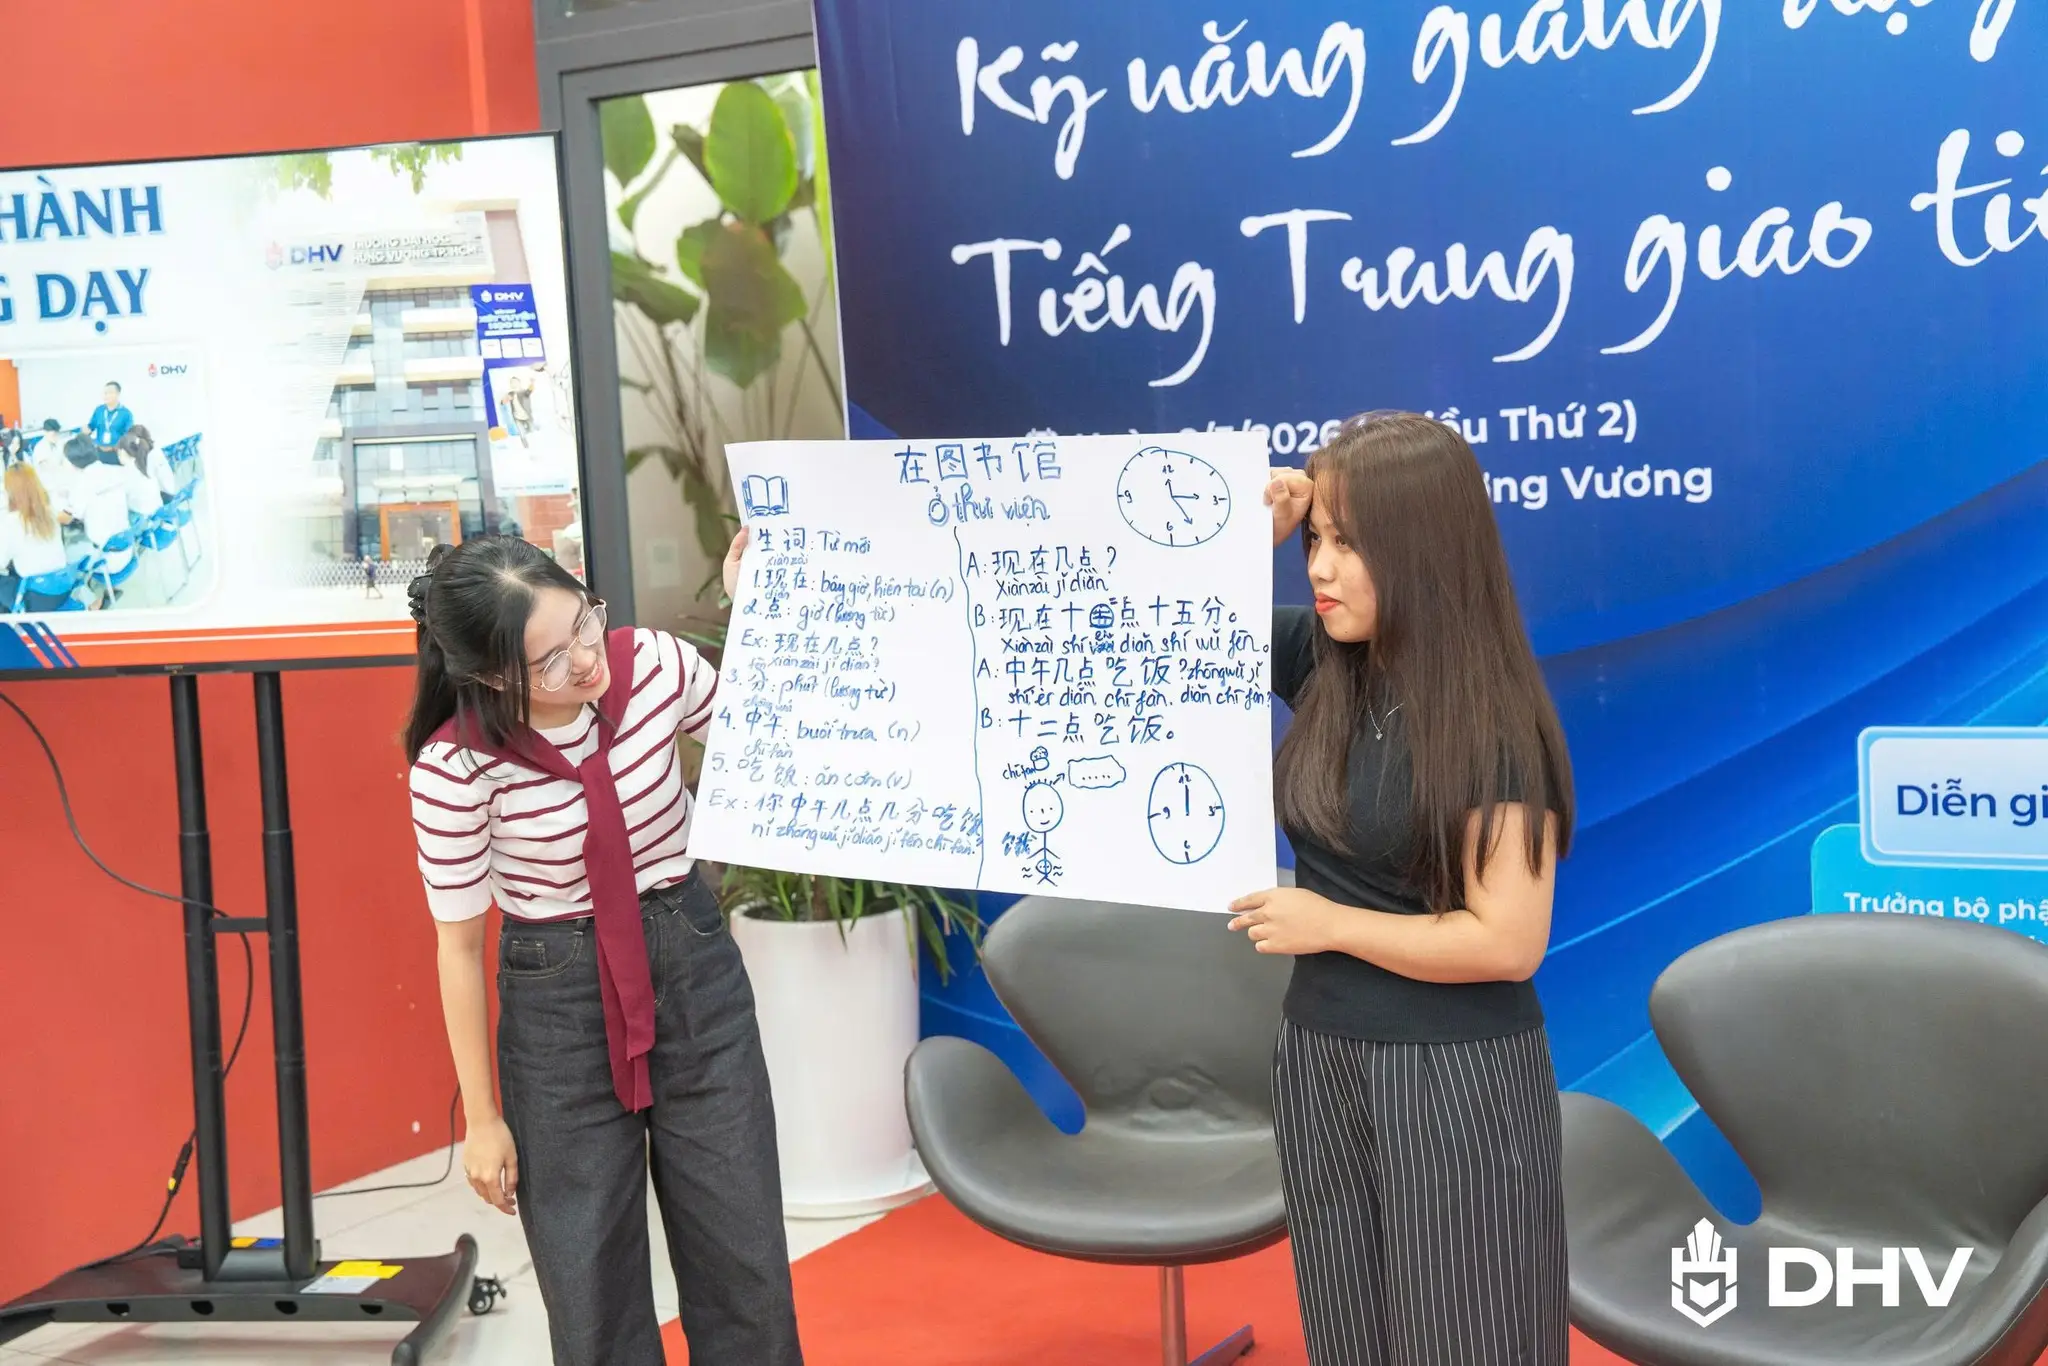 HÀNH
DẠY
DHV TRƯỜNG ĐẠI HỌC
HÙNG VƯƠNG TP.HCM
DHV
DHV
Kỹ năng giảng
Tiếng Trung giao
2026
Thứ 2)
Vương
Diễn
Trưởng bộ
在图书馆
Ở thư viện
12
3
6
9
生词: Từ mới
xiànzài
1. 现在: bây giờ, hiện tại (n)
diǎn
2. 点: giờ (lượng từ)
Ex: 现在几点?
xiànzài jǐ diǎn?
fēn
3. 分: phút (lượng từ)
zhōngwǔ
4. 中午: buổi trưa (n)
chī fàn
5. 吃饭: ăn cơm (v)
Ex: 你中午几点几分吃饭
nǐ zhōngwǔ jǐ diǎn jǐ fēn chī fàn?
A: 现在几点?
Xiànzài jǐ diǎn
B: 现在十二点十五分。
Xiànzài shí èr diǎn shí wǔ fēn.
A: 中午几点吃饭? zhōngwǔ jǐ
shí èr diǎn chī fàn. diǎn chī fàn?
B: 十二点吃饭。
chī fàn
.....
饿
12
3
6
9
DHV